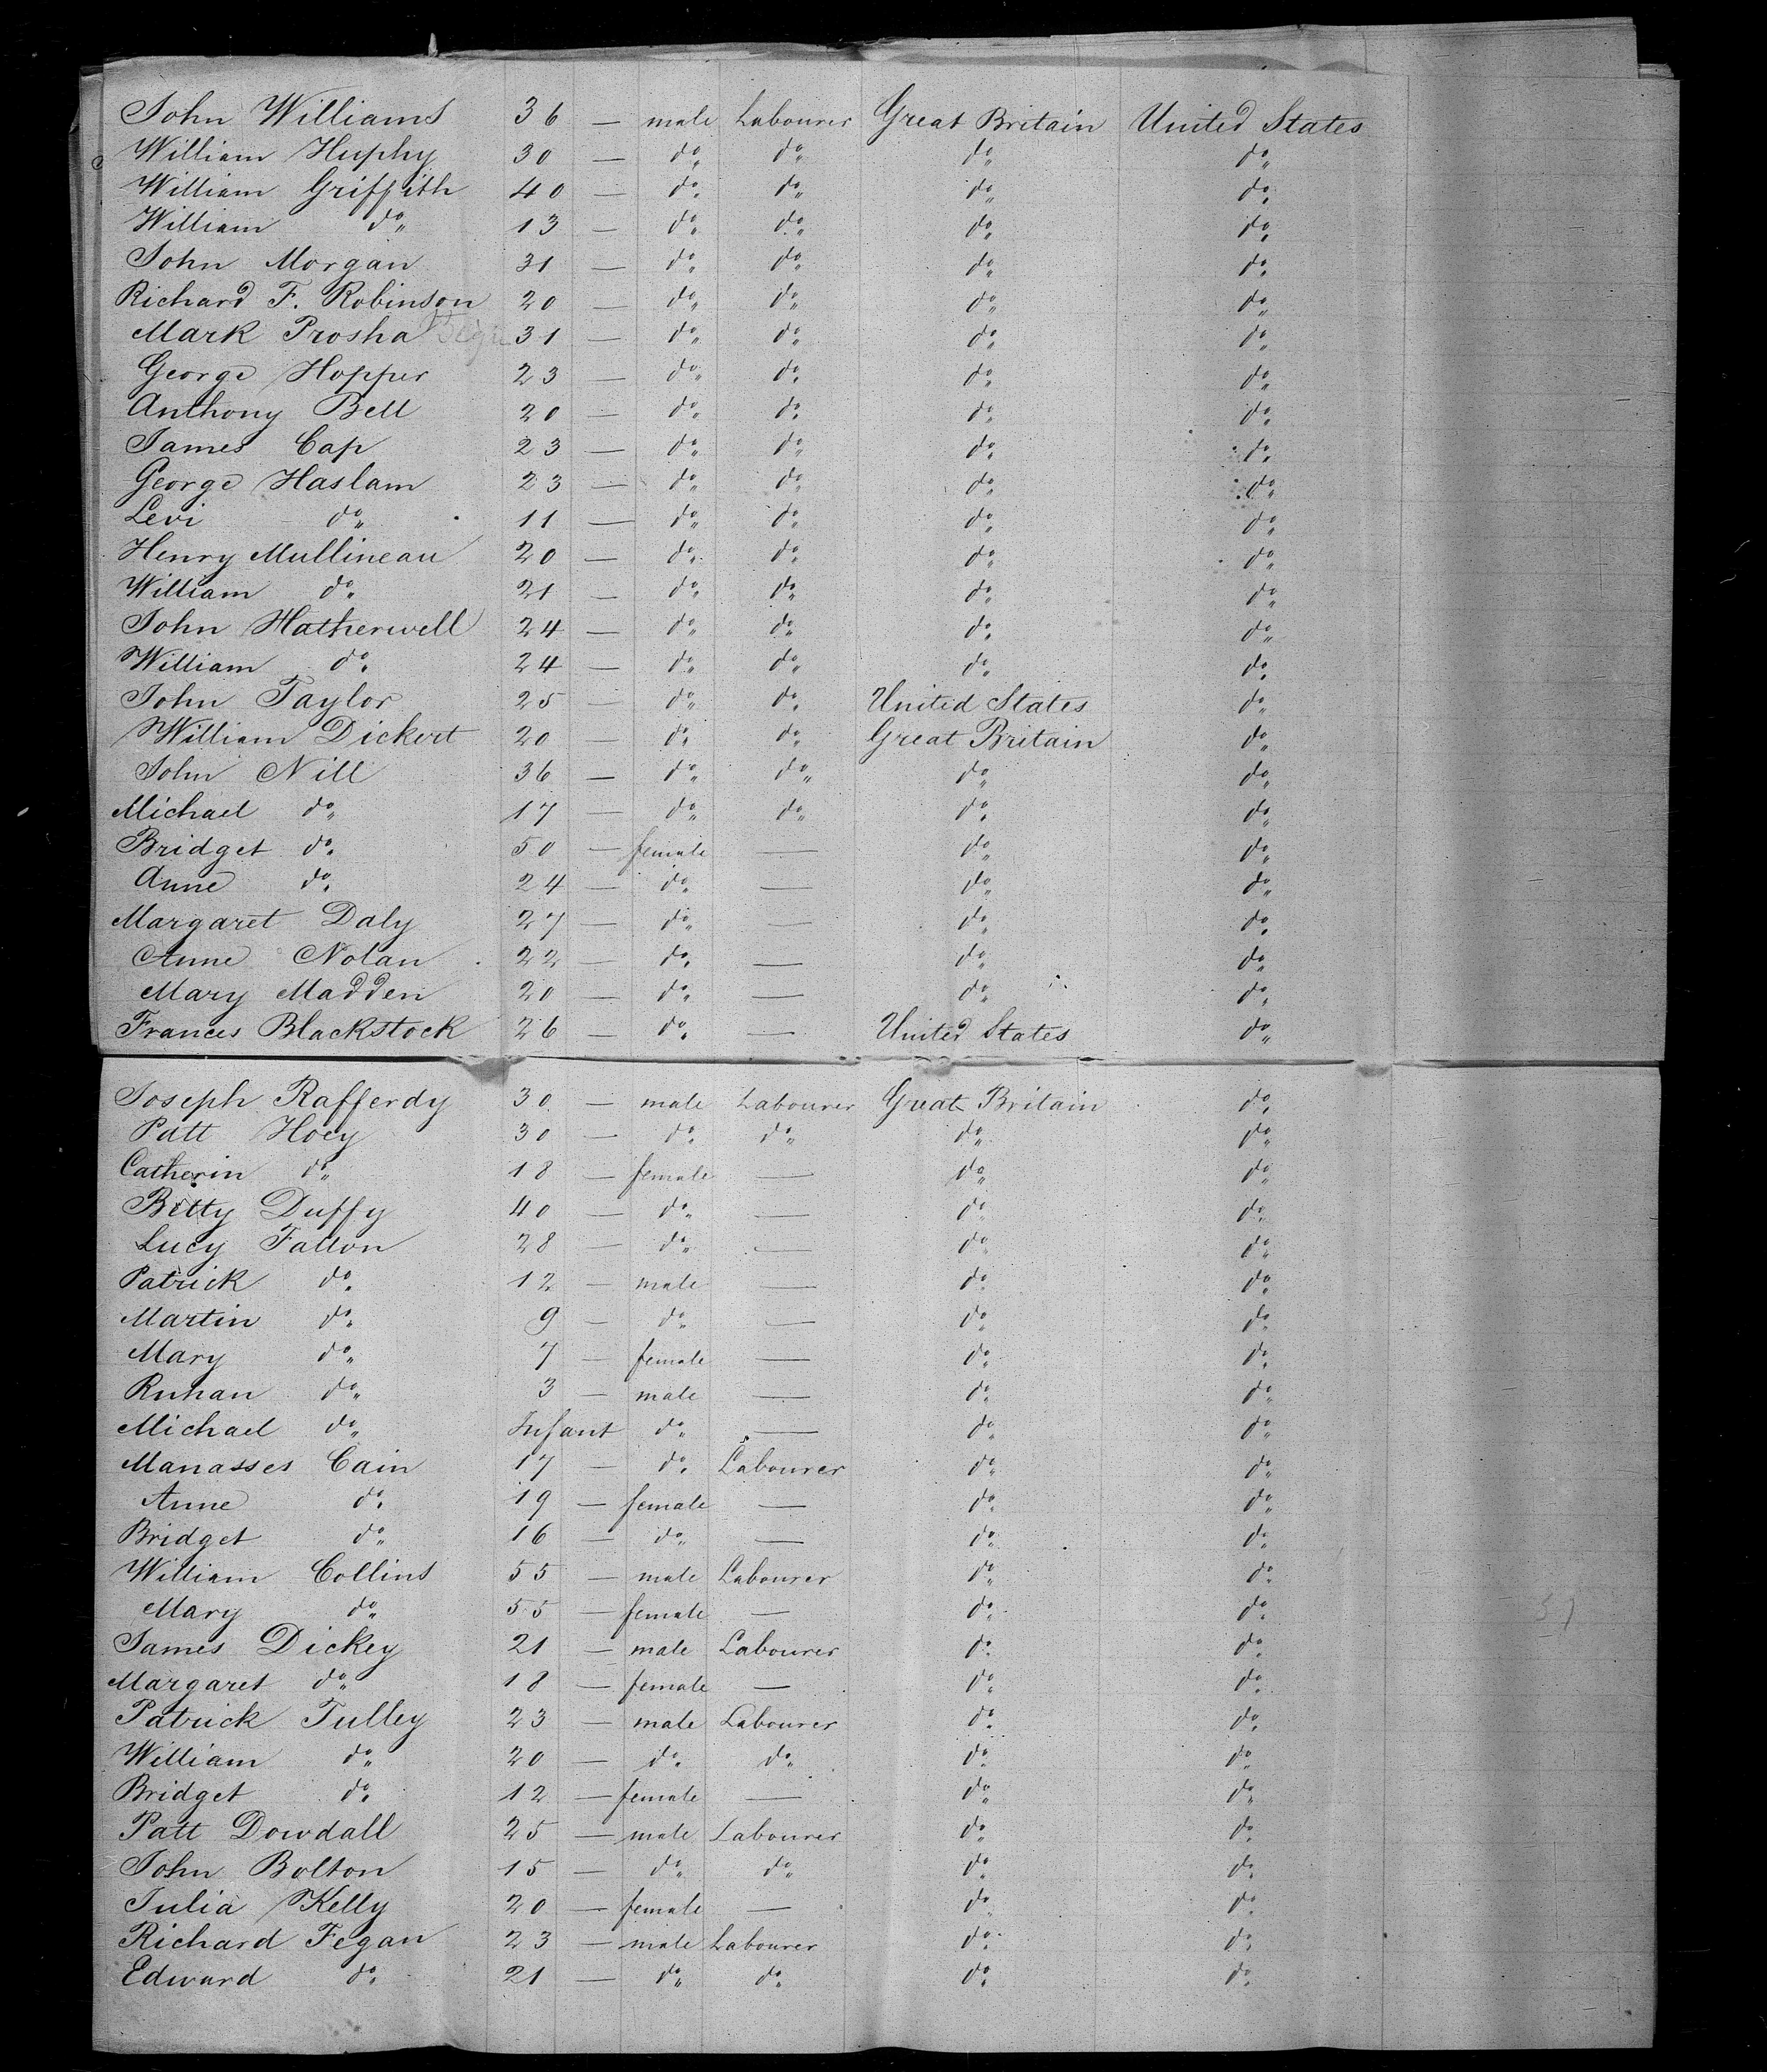 John Williams 36 — male Labourer Great Britain United States
William Huphy 30 — do do do do
William Griffith 40 — do do do do
William do 13 — do do do do
John Morgan 31 — do do do do
Richard F. Robinson 20 — do do do do
Mark Prosha 31 — do do do do
George Hopper 23 — do do do do
Anthony Bell 20 — do do do do
James Cap 23 — do do do do
George Haslam 23 — do do do do
Levi do 11 — do do do do
Henry Mullineau 20 — do do do do
William do 21 — do do do do
John Hatherwell 24 — do do do do
William do 24 — do do do do
John Taylor 25 — do do United States do
William Dickert 20 — do do Great Britain do
John Nill 36 — do do do do
Michael do 17 — do do do do
Bridget do 50 — female — do do
Anne do 24 — do — do do
Margaret Daly 27 — do — do do
Anne Nolan 22 — do — do do
Mary Madden 20 — do — do do
Frances Blackstock 26 — do — United States do
Joseph Rafferdy 30 — male Labourer Great Britain do
Patt Hoey 30 — do do do do
Catherin do 18 — female — do do
Bitty Duffy 40 — do — do do
Lucy Fallon 28 — do — do do
Patrick do 12 — male — do do
Martin do 9 — do — do do
Mary do 7 — female — do do
Ruhan do 3 — male — do do
Michael do Infant do — do do
Manasses Cain 17 — do Labourer do do
Anne do 19 — female — do do
Bridget do 16 — do — do do
William Collins 55 — male Labourer do do
Mary do 55 — female — do do
James Dickey 21 — male Labourer do do
Margaret do 18 — female — do do
Patrick Tulley 23 — male Labourer do do
William do 20 — do do do do
Bridget do 12 — female — do do
Patt Dowdall 25 — male Labourer do do
John Bolton 15 — do do do do
Julia Kelly 20 — female — do do
Richard Fegan 23 — male Labourer do do
Edward do 21 — do do do do